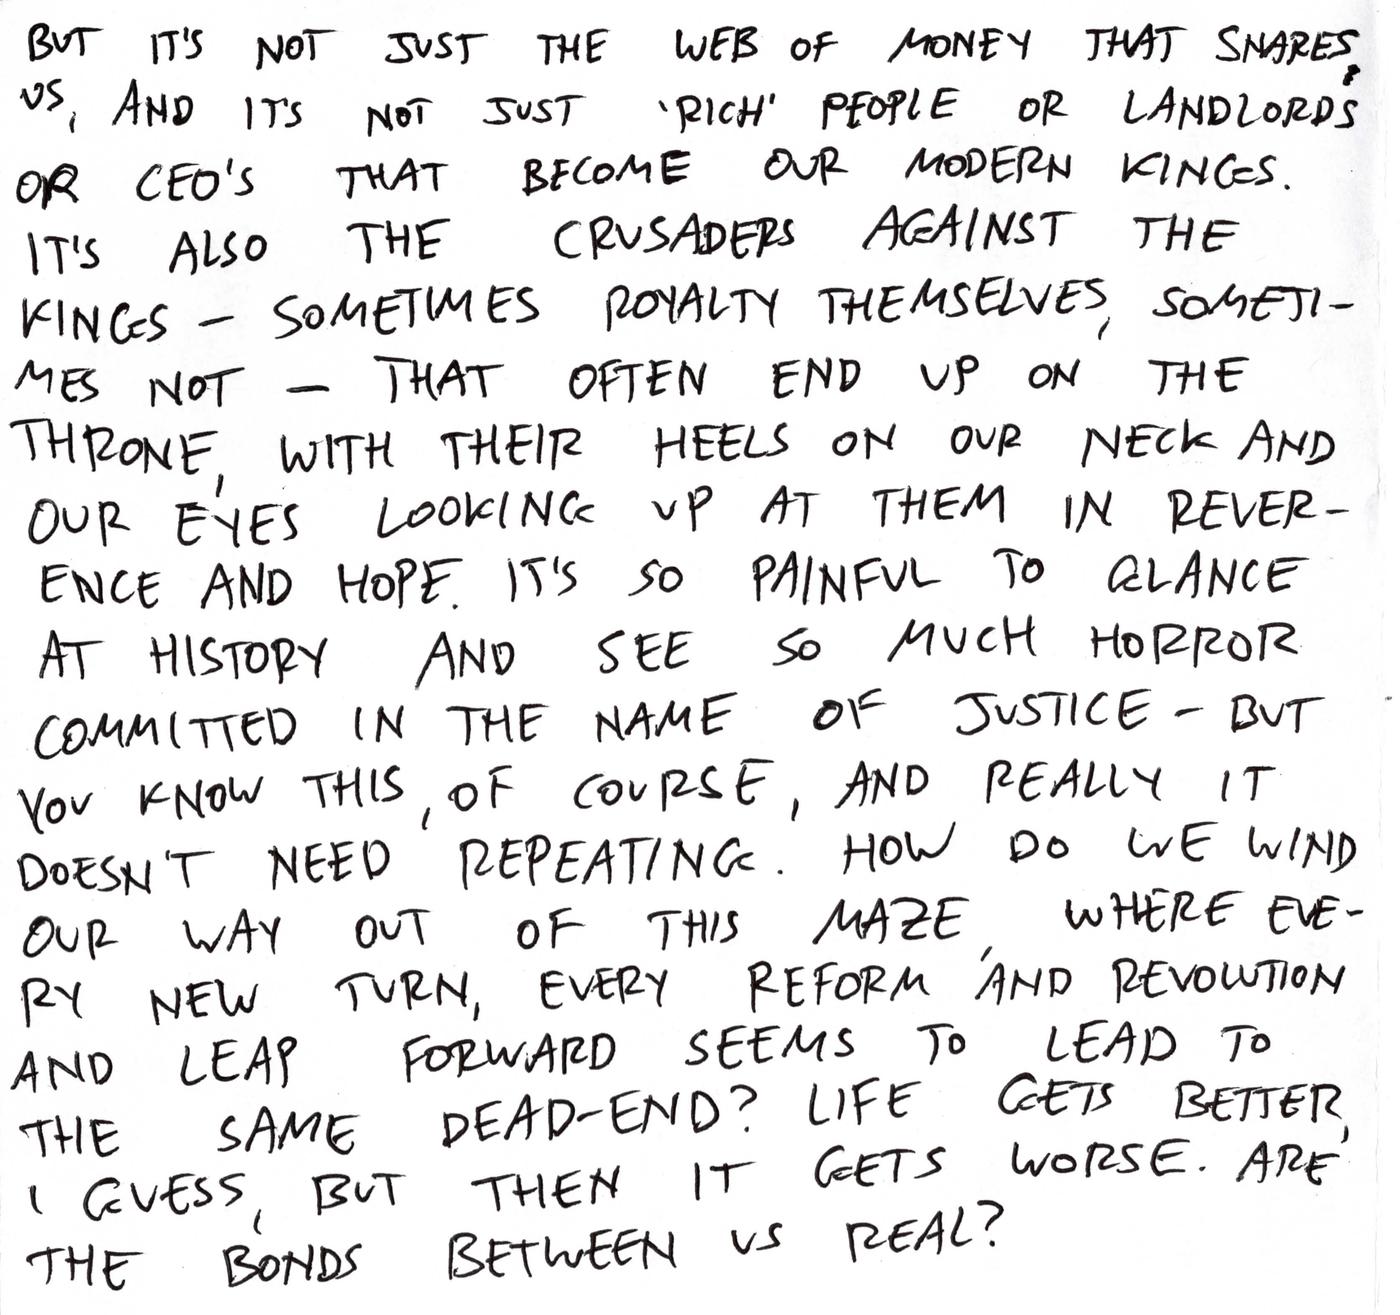 BUT IT'S NOT JUST THE WEB OF MONEY THAT SNARES
US, AND IT'S NOT JUST 'RICH' PEOPLE OR LANDLORDS
OR CEO'S THAT BECOME OUR MODERN KINGS.
IT'S ALSO THE CRUSADERS AGAINST THE
KINGS – SOMETIMES ROYALTY THEMSELVES, SOMETI-
MES NOT – THAT OFTEN END UP ON THE
THRONE, WITH THEIR HEELS ON OUR NECK AND
OUR EYES LOOKING UP AT THEM IN REVER-
ENCE AND HOPE. IT'S SO PAINFUL TO GLANCE
AT HISTORY AND SEE SO MUCH HORROR
COMMITTED IN THE NAME OF JUSTICE – BUT
YOU KNOW THIS, OF COURSE, AND REALLY IT
DOESN'T NEED REPEATING. HOW DO WE WIND
OUR WAY OUT OF THIS MAZE, WHERE EVE-
RY NEW TURN, EVERY REFORM AND REVOLUTION
AND LEAP FORWARD SEEMS TO LEAD TO
THE SAME DEAD-END? LIFE GETS BETTER,
I GUESS, BUT THEN IT GETS WORSE. ARE
THE BONDS BETWEEN US REAL?